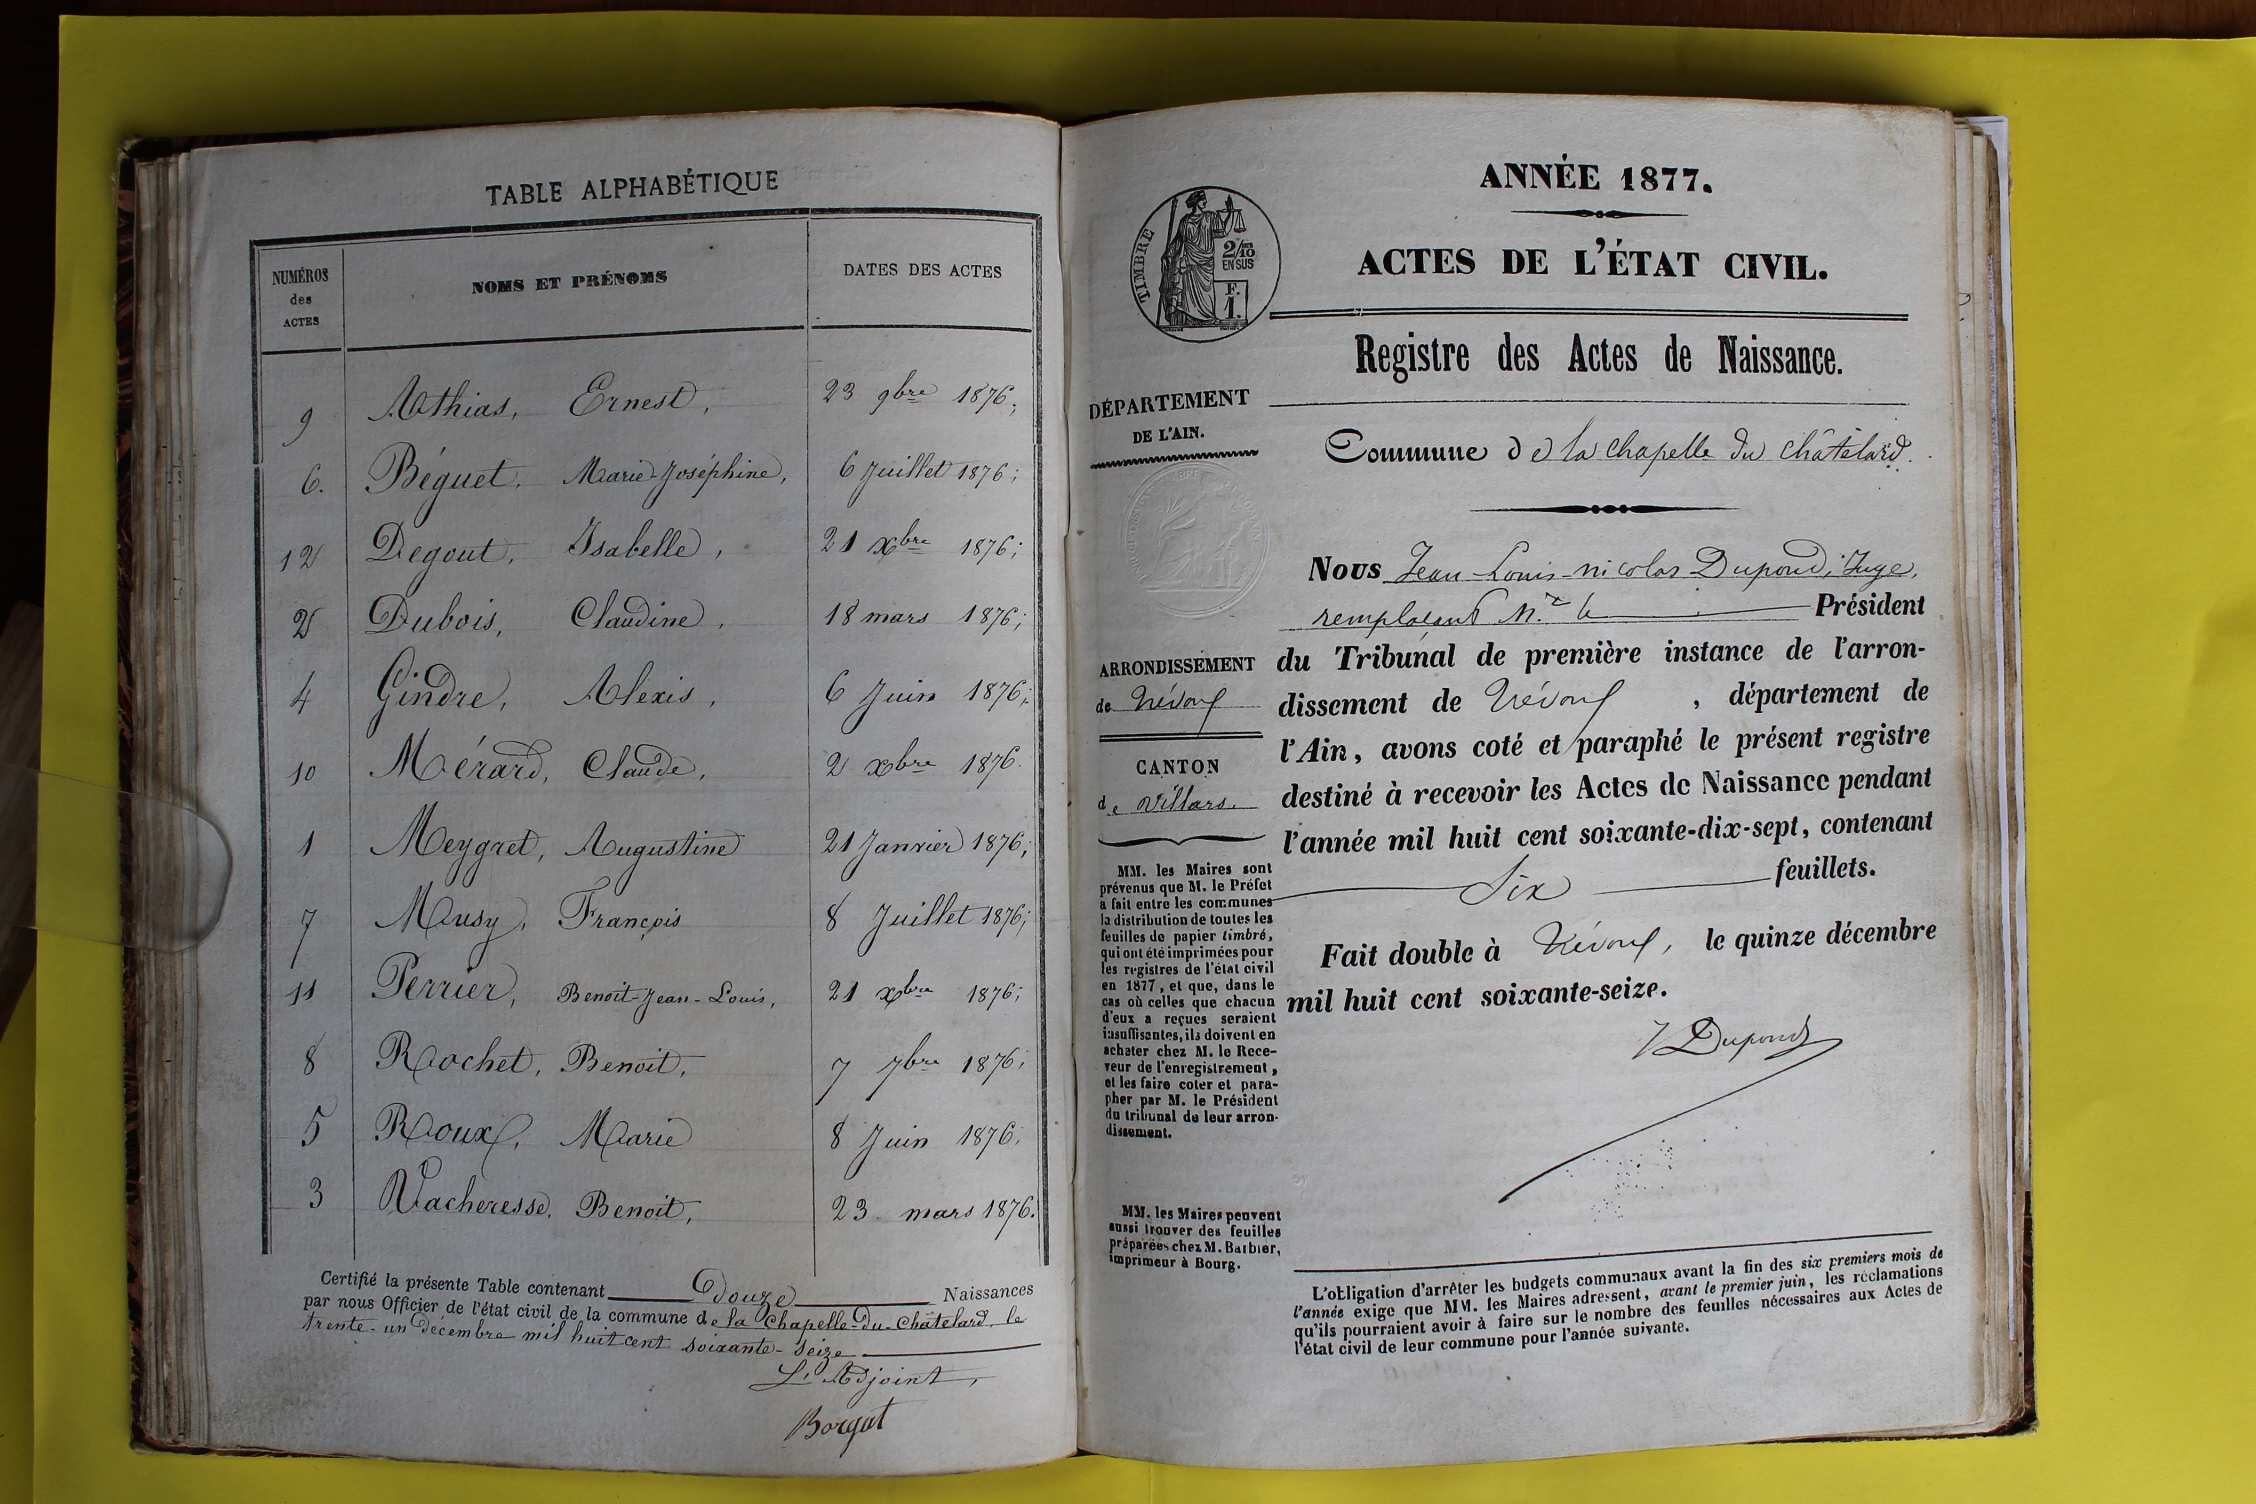 TABLE ALPHABÉTIQUE
NUMÉROS des ACTES NOMS ET PRÉNOMS DATES DES ACTES
9 Athias, Ernest, 23 9bre 1876;
6. Béguet, Marie-Joséphine, 6 Juillet 1876;
12 Degout, Isabelle, 21 Xbre 1876;
2 Dubois, Claudine, 18 mars 1876;
4 Gindre, Alexis, 6 Juin 1876;
10 Mérard, Claude, 2 Xbre 1876.
1 Meygret, Augustine 21 Janvier 1876;
7 Musy, François 8 Juillet 1876;
11 Perrier, Benoit-Jean-Louis, 21 Xbre 1876;
8 Rochet, Benoit, 7 7bre 1876;
5 Roux, Marie 8 Juin 1876;
3 Vacheresse, Benoit, 23 mars 1876.
Certifié la présente Table contenant Douze Naissances
par nous Officier de l'état civil de la commune de la Chapelle-du-Châtelard, le
trente-un décembre mil huit cent soixante-seize
L'Adjoint,
Borgat
ANNÉE 1877.
ACTES DE L'ÉTAT CIVIL.
TIMBRE
2/10 EN SUS
F. 1.
Registre des Actes de Naissance.
DÉPARTEMENT
DE L'AIN.
Commune de la chapelle du châtelard.
Nous Jean-Louis-nicolas Dupond, Juge,
remplaçant Mr le Président
du Tribunal de première instance de l'arron-
dissement de Trévoux, département de
l'Ain, avons coté et paraphé le présent registre
destiné à recevoir les Actes de Naissance pendant
l'année mil huit cent soixante-dix-sept, contenant
Six feuillets.
Fait double à Trévoux, le quinze décembre
mil huit cent soixante-seize.
Dupond
ARRONDISSEMENT
de Trévoux
CANTON
de Villars.
MM. les Maires sont
prévenus que M. le Préfet
a fait entre les communes
la distribution de toutes les
feuilles de papier timbré,
qui ont été imprimées pour
les registres de l'état civil
en 1877, et que, dans le
cas où celles que chacun
d'eux a reçues seraient
insuffisantes, ils doivent en
acheter chez M. le Rece-
veur de l'enregistrement,
et les faire coter et para-
pher par M. le Président
du tribunal de leur arron-
dissement.
MM. les Maires peuvent
aussi trouver des feuilles
préparées chez M. Barbier,
imprimeur à Bourg.
L'obligation d'arrêter les budgets communaux avant la fin des six premiers mois de
l'année exige que MM. les Maires adressent, avant le premier juin, les réclamations
qu'ils pourraient avoir à faire sur le nombre des feuilles nécessaires aux Actes de
l'état civil de leur commune pour l'année suivante.